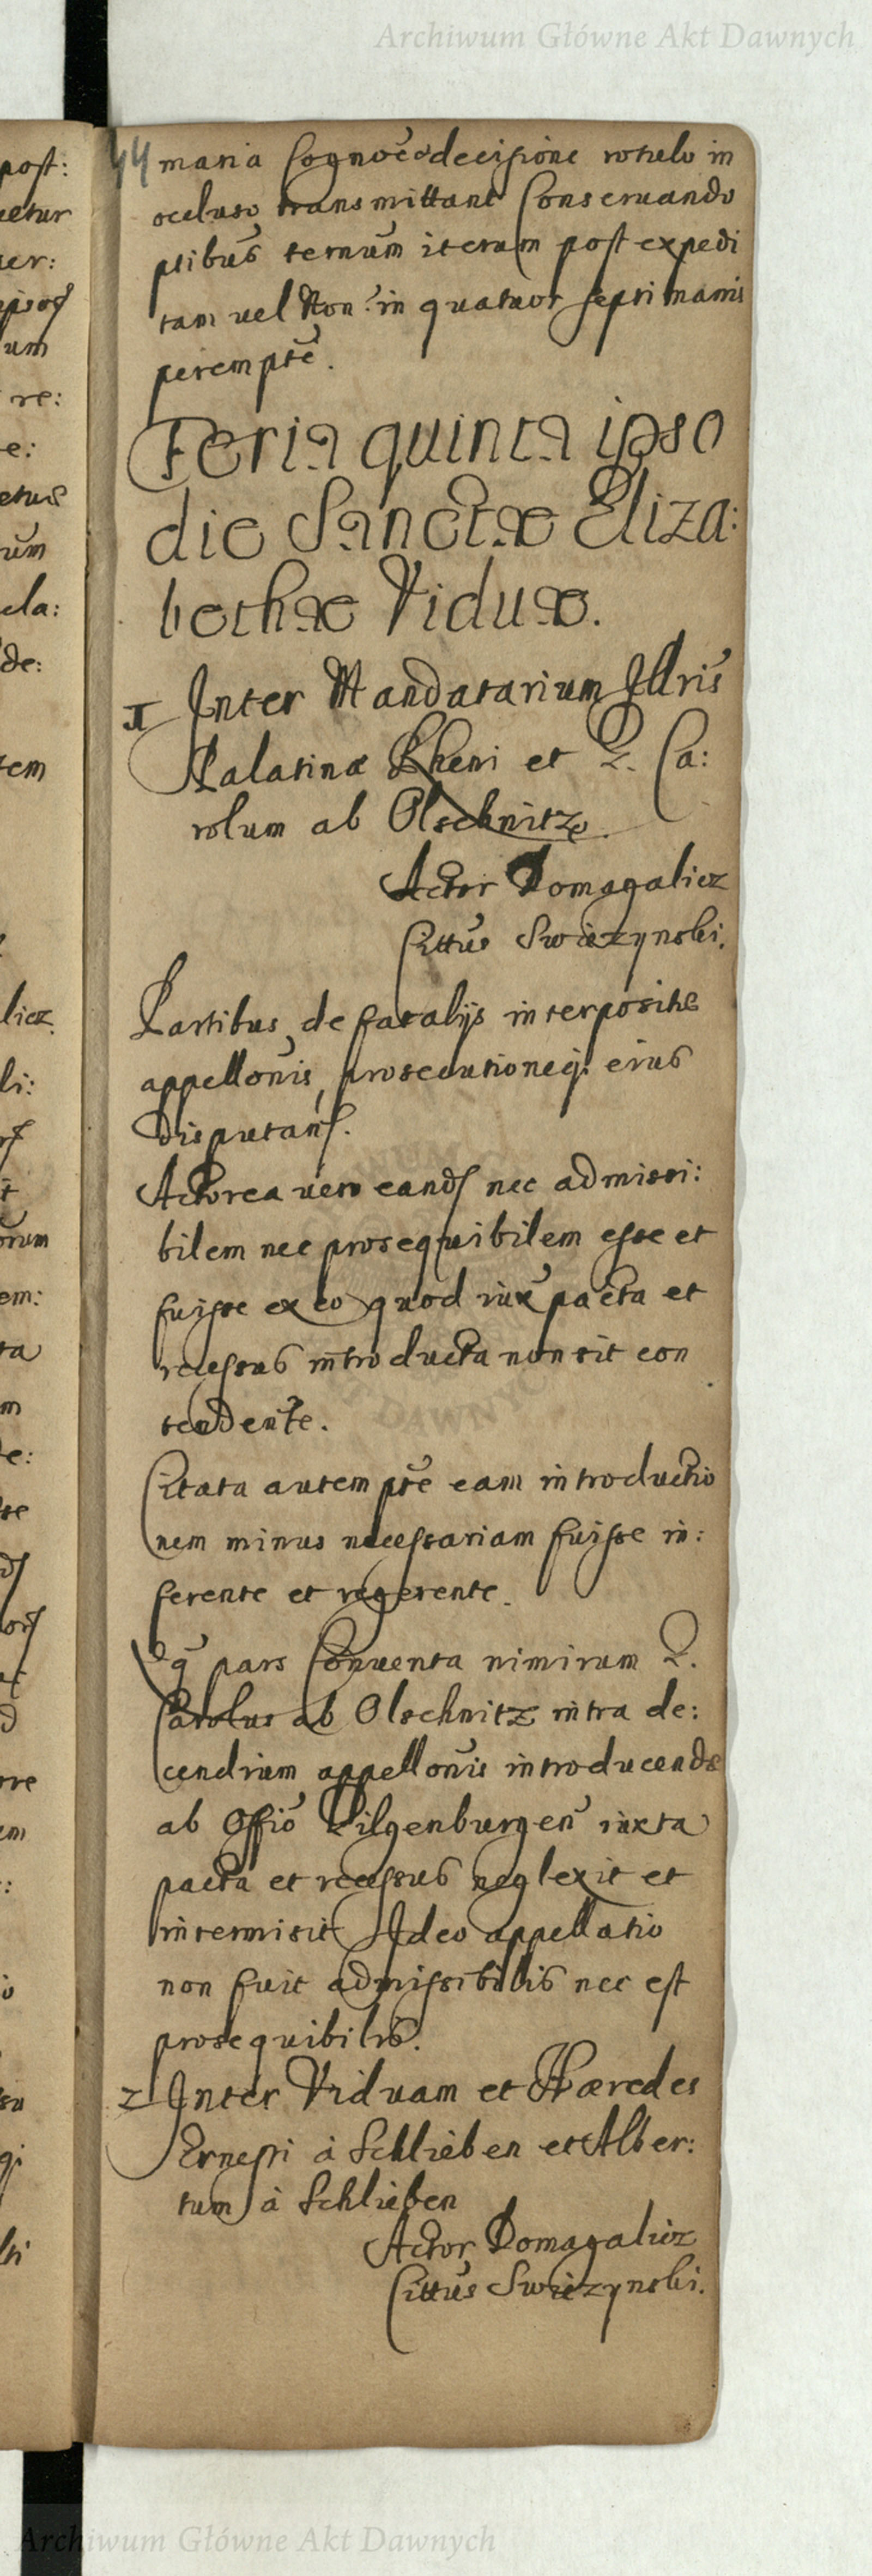 Archiwum Główne Akt Dawnych
44 maria Cognõe decisione rotulo in
occluso transmittant Conseruando
ptibus ternum iterum post expedi
tam vel Non: in quatuor septimanis
peremptẽ.
Feria quinta ipso
die Sanctæ Eliza:
bethæ Viduæ.
1 Inter Mandatarium Illris
Palatinæ Rheni et G. Ca:
rolum ab Olschnitz.
Actor Domagalicz
Cittus Swiezynski.
Partibus de fatalijs interpositæ
appellonis, prosecutioneq; eius
disputan.
Actorea vero eand nec admissi:
bilem nec prosequibilem esse et
fuisse ex eo quod iux pacta et
recessus introducta non sit con
tendente.
Citata autem pte eam introductio
nem minus necessariam fuisse in:
ferente et regerente.
Qa pars Conuenta nimirum G.
Carolus ab Olschnitz intra de:
cendium appellonis introducendæ
ab Offio Gilgenburgen iuxta
pacta et recessus neglexit et
intermisit Ideo appellatio
non fuit admissibilis nec est
prosequibilis.
2 Inter Viduam et Hæredes
Ernesti à Schlieben et Alber:
tum à Schlieben
Actor Domagalicz
Cittus Swiezynski.
Archiwum Główne Akt Dawnych